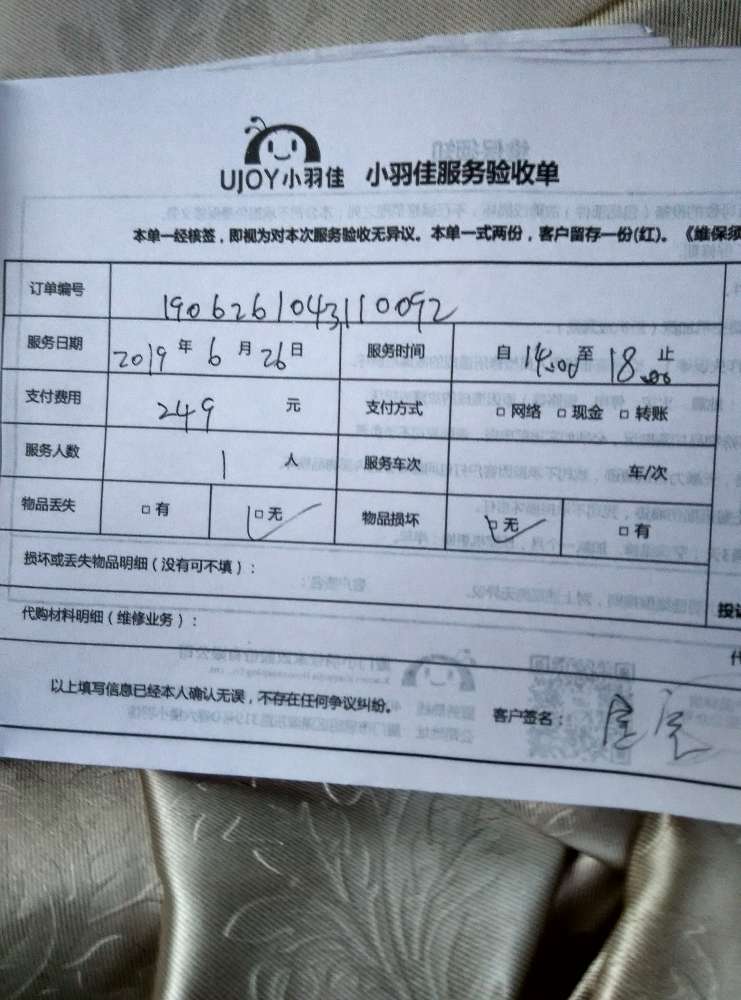 UJOY小羽佳 小羽佳服务验收单
本单一经核签，即视为对本次服务验收无异议。本单一式两份，客户留存一份(红)。《维保须
订单编号 1906261043110092
服务日期 2019 年 6 月 26 日 服务时间 自 14:00 至 18:00 止
支付费用 249 元 支付方式 □ 网络 □ 现金 □ 转账
服务人数 1 人 服务车次 车/次
物品丢失 □ 有 □ 无 物品损坏 □ 无 □ 有
损坏或丢失物品明细（没有可不填）：
投诉
代购材料明细（维修业务）：
代
以上填写信息已经本人确认无误，不存在任何争议纠纷。 客户签名：